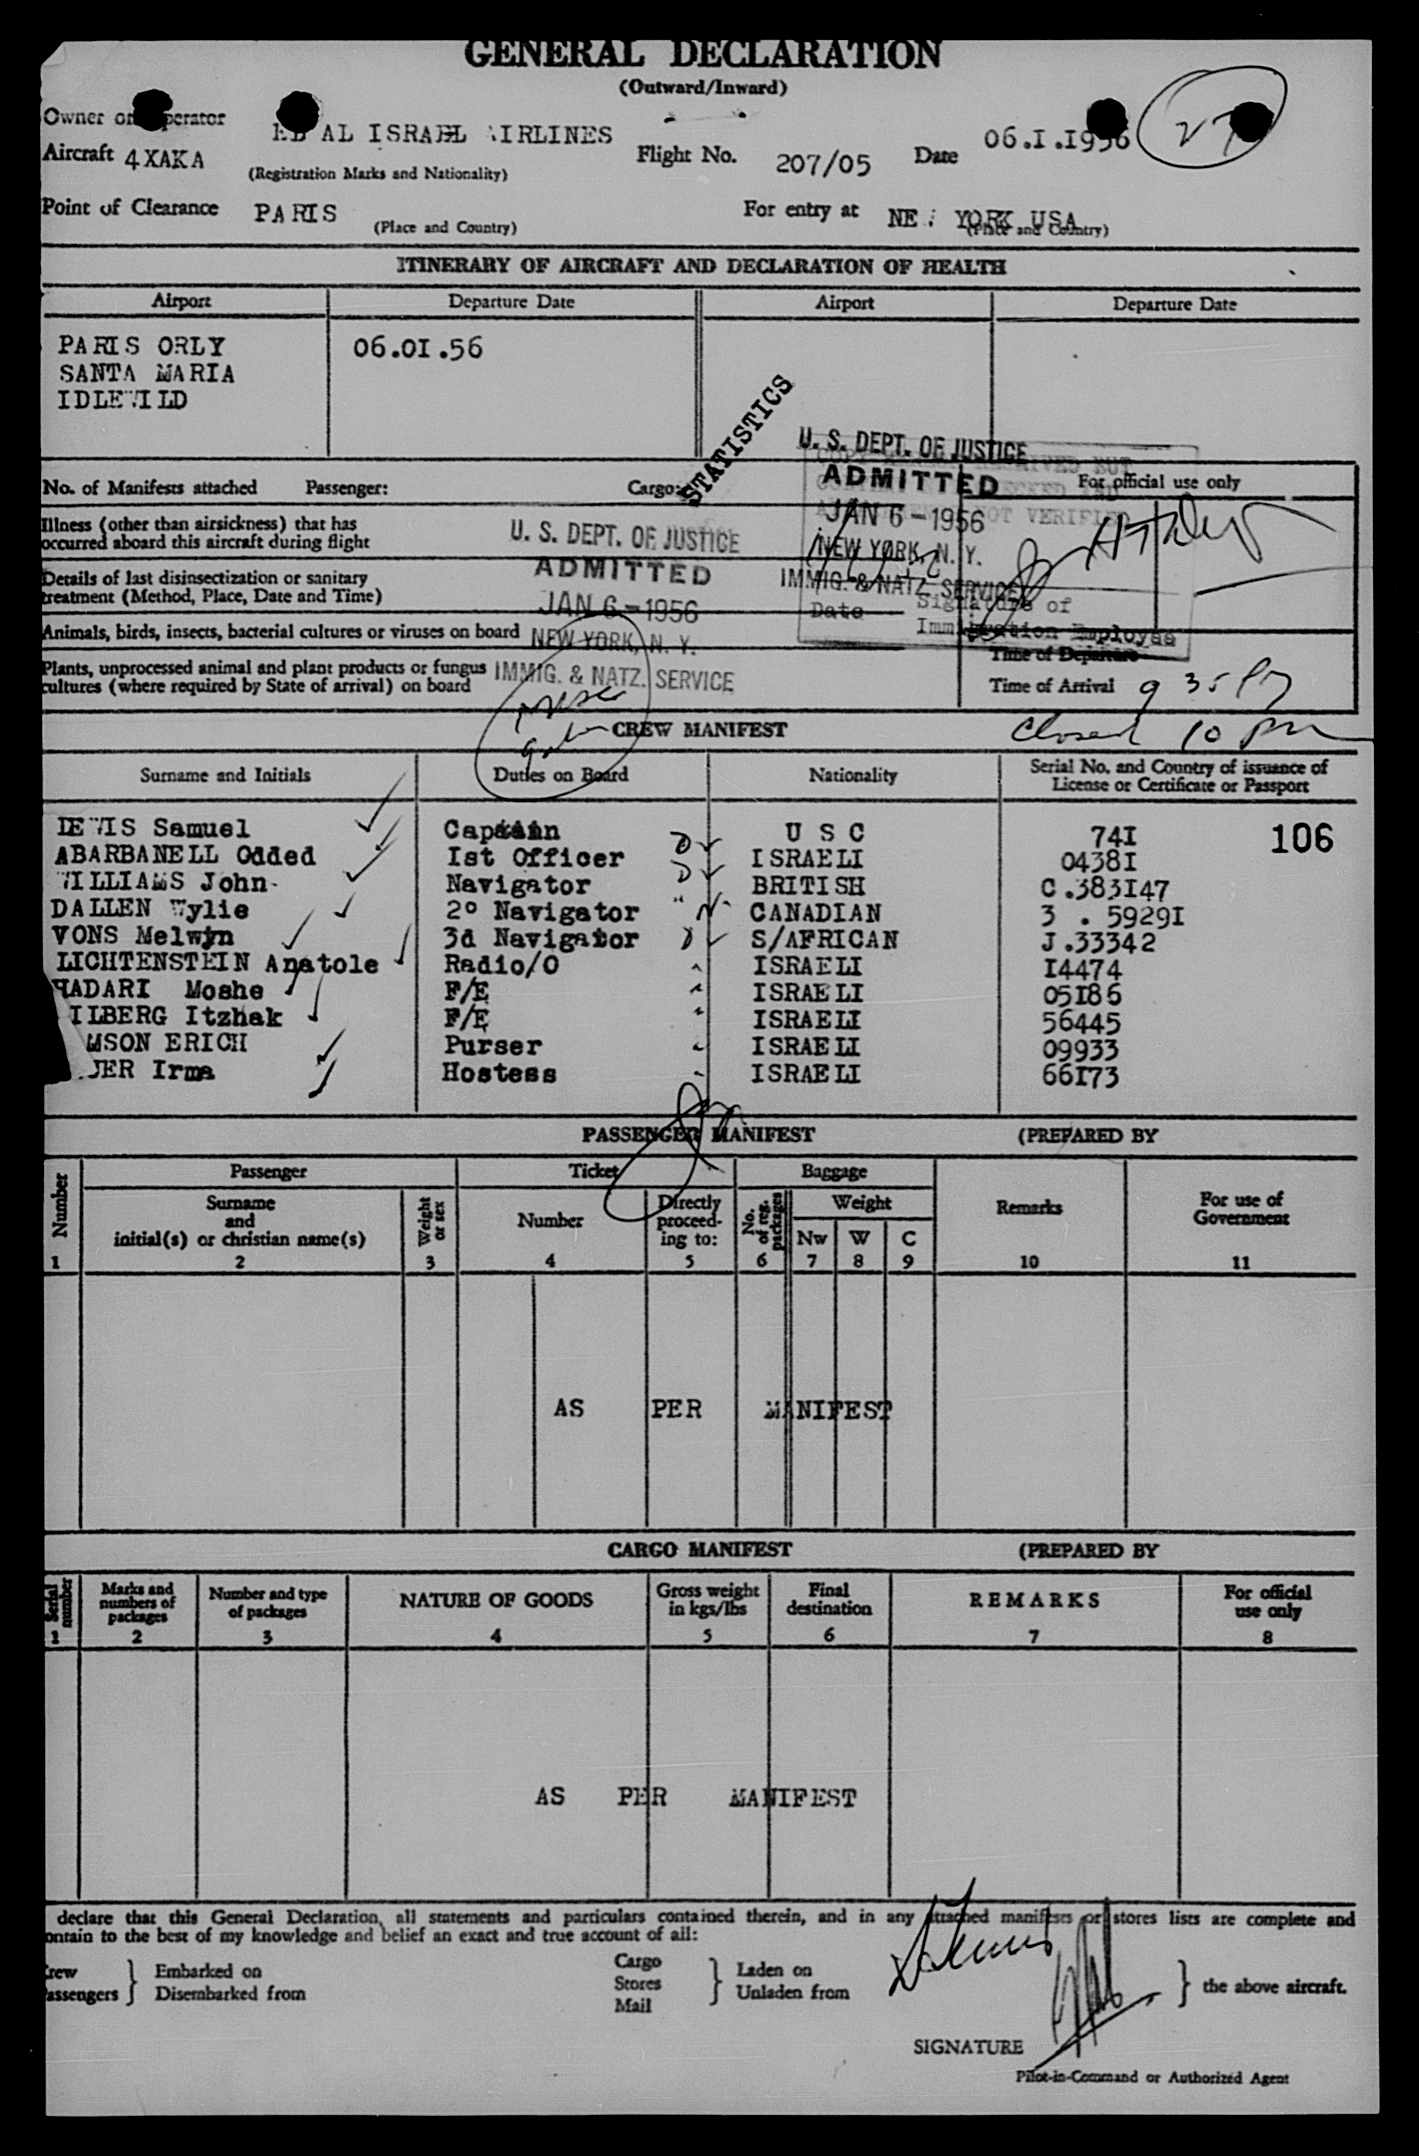 GENERAL DECLARATION
(Outward/Inward)
Owner or Operator AL ISRAEL AIRLINES
Aircraft 4XAKA (Registration Marks and Nationality) Flight No. 207/05 Date 06.I.1956 27
Point of Clearance PARIS (Place and Country) For entry at NEW YORK USA (Place and Country)
ITINERARY OF AIRCRAFT AND DECLARATION OF HEALTH
Airport Departure Date Airport Departure Date
PARIS ORLY 06.0I.56
SANTA MARIA
IDLEWILD
STATISTICS
U. S. DEPT. OF JUSTICE
ADMITTED
JAN 6 - 1956
NEW YORK, N. Y.
IMMIG. & NATZ. SERVICE
NOT VERIFIED
Date Signature of
Immigration Employee
No. of Manifests attached Passenger: Cargo: For official use only
Illness (other than airsickness) that has
occurred aboard this aircraft during flight
Details of last disinsectization or sanitary
treatment (Method, Place, Date and Time)
Animals, birds, insects, bacterial cultures or viruses on board
Plants, unprocessed animal and plant products or fungus
cultures (where required by State of arrival) on board
U. S. DEPT. OF JUSTICE
ADMITTED
JAN 6 - 1956
NEW YORK, N. Y.
IMMIG. & NATZ. SERVICE
Time of Departure
Time of Arrival 9 35 PM
Closed 10 pm
CREW MANIFEST
Surname and Initials Duties on Board Nationality Serial No. and Country of issuance of
License or Certificate or Passport
LEWIS Samuel Captain U S C 74I 106
ABARBANELL Odded Ist Officer ISRAELI 0438I
WILLIAMS John Navigator BRITISH C.383I47
DALLEN Wylie 2º Navigator CANADIAN 3 . 5929I
VONS Melwyn 3d Navigator S/AFRICAN J.33342
LICHTENSTEIN Anatole Radio/O ISRAELI I4474
HADARI Moshe F/E ISRAELI 05I86
ILBERG Itzhak F/E ISRAELI 56445
MSON ERICH Purser ISRAELI 09933
UER Irma Hostess ISRAELI 66I73
PASSENGER MANIFEST (PREPARED BY
Number Passenger Ticket Baggage Remarks For use of
Government
Surname
and
initial(s) or christian name(s) Weight or sex Number Directly
proceed-
ing to: No. of reg. packages Weight
Nw W C
1 2 3 4 5 6 7 8 9 10 11
AS PER MANIFEST
CARGO MANIFEST (PREPARED BY
Serial number Marks and
numbers of
packages Number and type
of packages NATURE OF GOODS Gross weight
in kgs/lbs Final
destination REMARKS For official
use only
1 2 3 4 5 6 7 8
AS PER MANIFEST
declare that this General Declaration, all statements and particulars contained therein, and in any attached manifests or stores lists are complete and
ontain to the best of my knowledge and belief an exact and true account of all:
rew
assengers } Embarked on
Disembarked from
Cargo
Stores
Mail } Laden on
Unladen from } the above aircraft.
SIGNATURE
Pilot-in-Command or Authorized Agent